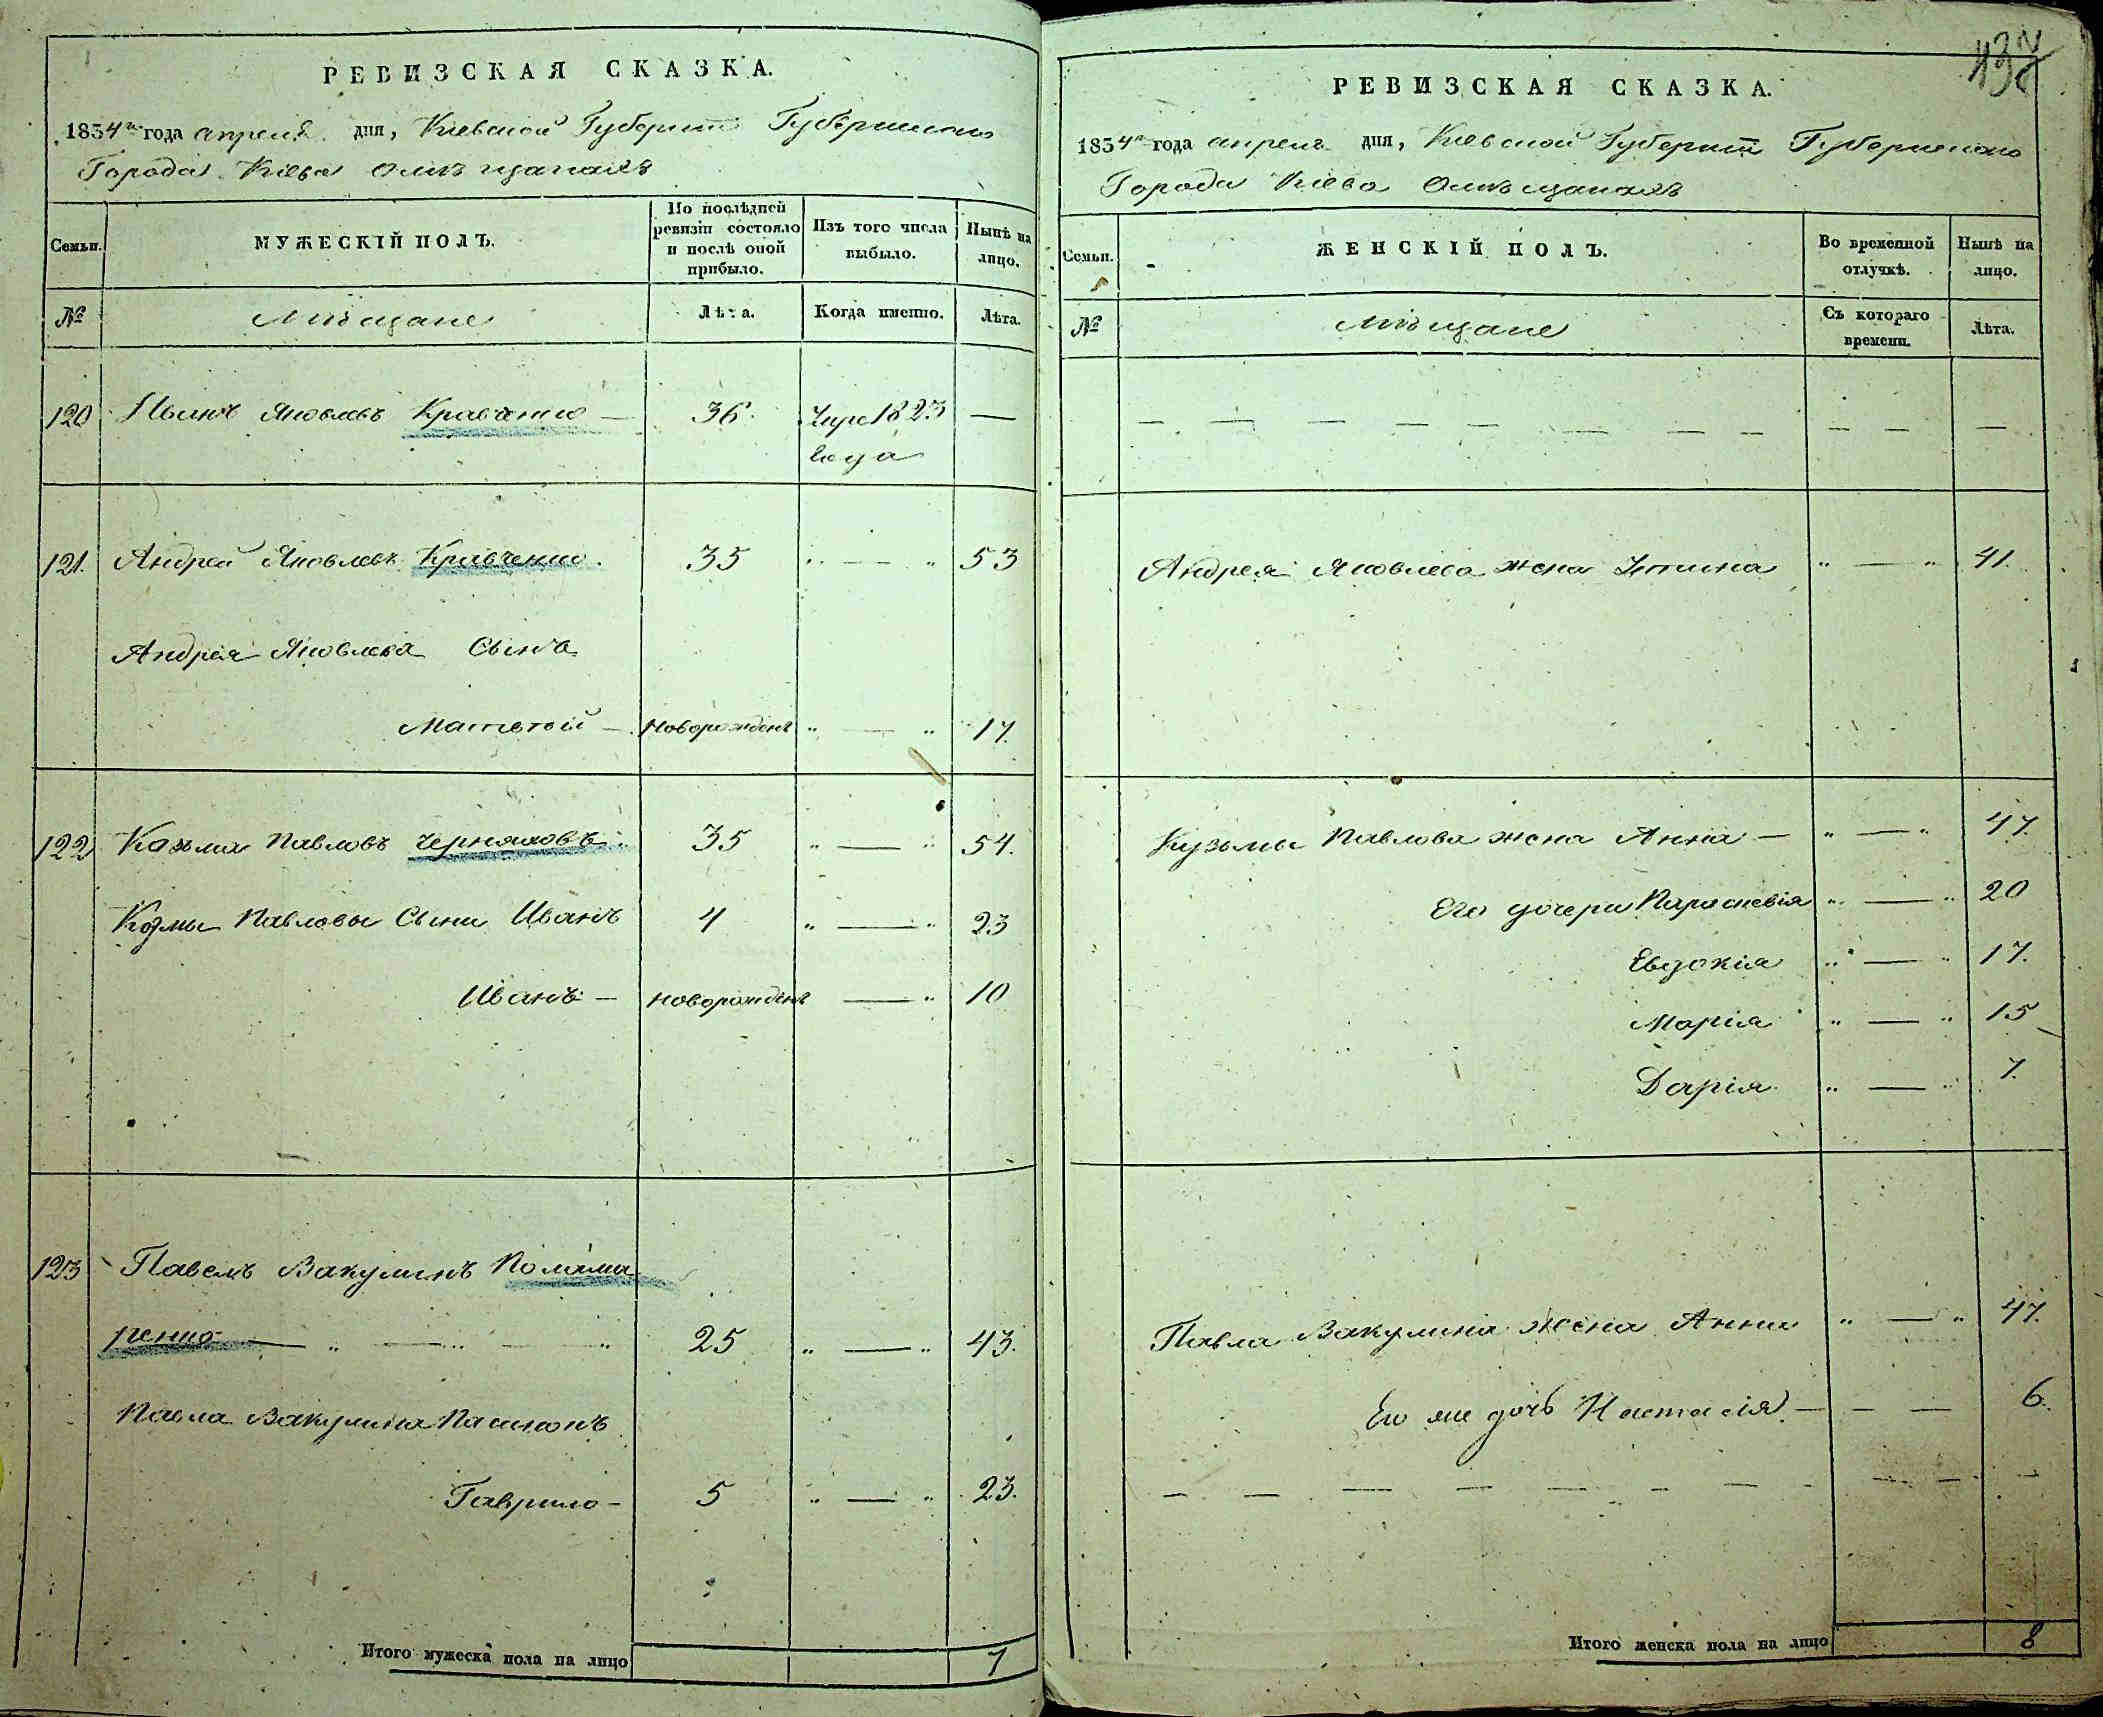 РЕВИЗСКАЯ СКАЗКА.
1834го года апреля дня, Кіевской Губерніи Губернскаго
Города Кіева Омѣщанахъ
Семьи.
МУЖЕСКІЙ ПОЛЪ.
По послѣдней ревизіи состояло и послѣ оной прибыло.
Изъ того числа выбыло.
Нынѣ на лицо.
№
Мѣщане
Лѣта.
Когда именно.
Лѣта.
120 Иванъ Яковлевъ Кравченко — 36. 1823 —
года
121. Андрей Яковлевъ Кравченко. 35 „ — „ 53
Андрея Яковлева Сынъ
Матвѣй — Новорожденъ „ — „ 17.
122 Козьма Павловъ Черняховъ. 35 „ — „ 54.
Козмы Павловы Сыны Иванъ 4 „ — „ 23
Иванъ — новорожденъ — „ 10
123 Павелъ Вакулинъ Полама
ренко — „ — „ — „ 25 „ — „ 43.
Павла Вакулина Пасинокъ
Гаврило — 5 „ — „ 23.
Итого мужеска пола на лицо 7
РЕВИЗСКАЯ СКАЗКА.
1834го года апреля дня, Кіевской Губерніи Губернскаго
Города Кіева Омѣщанахъ
Семьи.
ЖЕНСКІЙ ПОЛЪ.
Во временной отлучкѣ.
Нынѣ на лицо.
№
Мѣщане
Съ котораго времени.
Лѣта.
— — — — — — — — — — —
Андрея Яковлева жена Устина „ — „ 41.
Кузьмы Павлова жена Анна — „ — „ 47.
Его дочери Параскевія „ — „ 20
Евдокія „ — „ 17.
Марія „ — „ 15
Дарія „ — „ 7.
Павла Вакулина жена Анна „ — „ 47.
Его же дочь Настасія — — — 6.
— — — — — — — — — — —
Итого женска пола на лицо 8